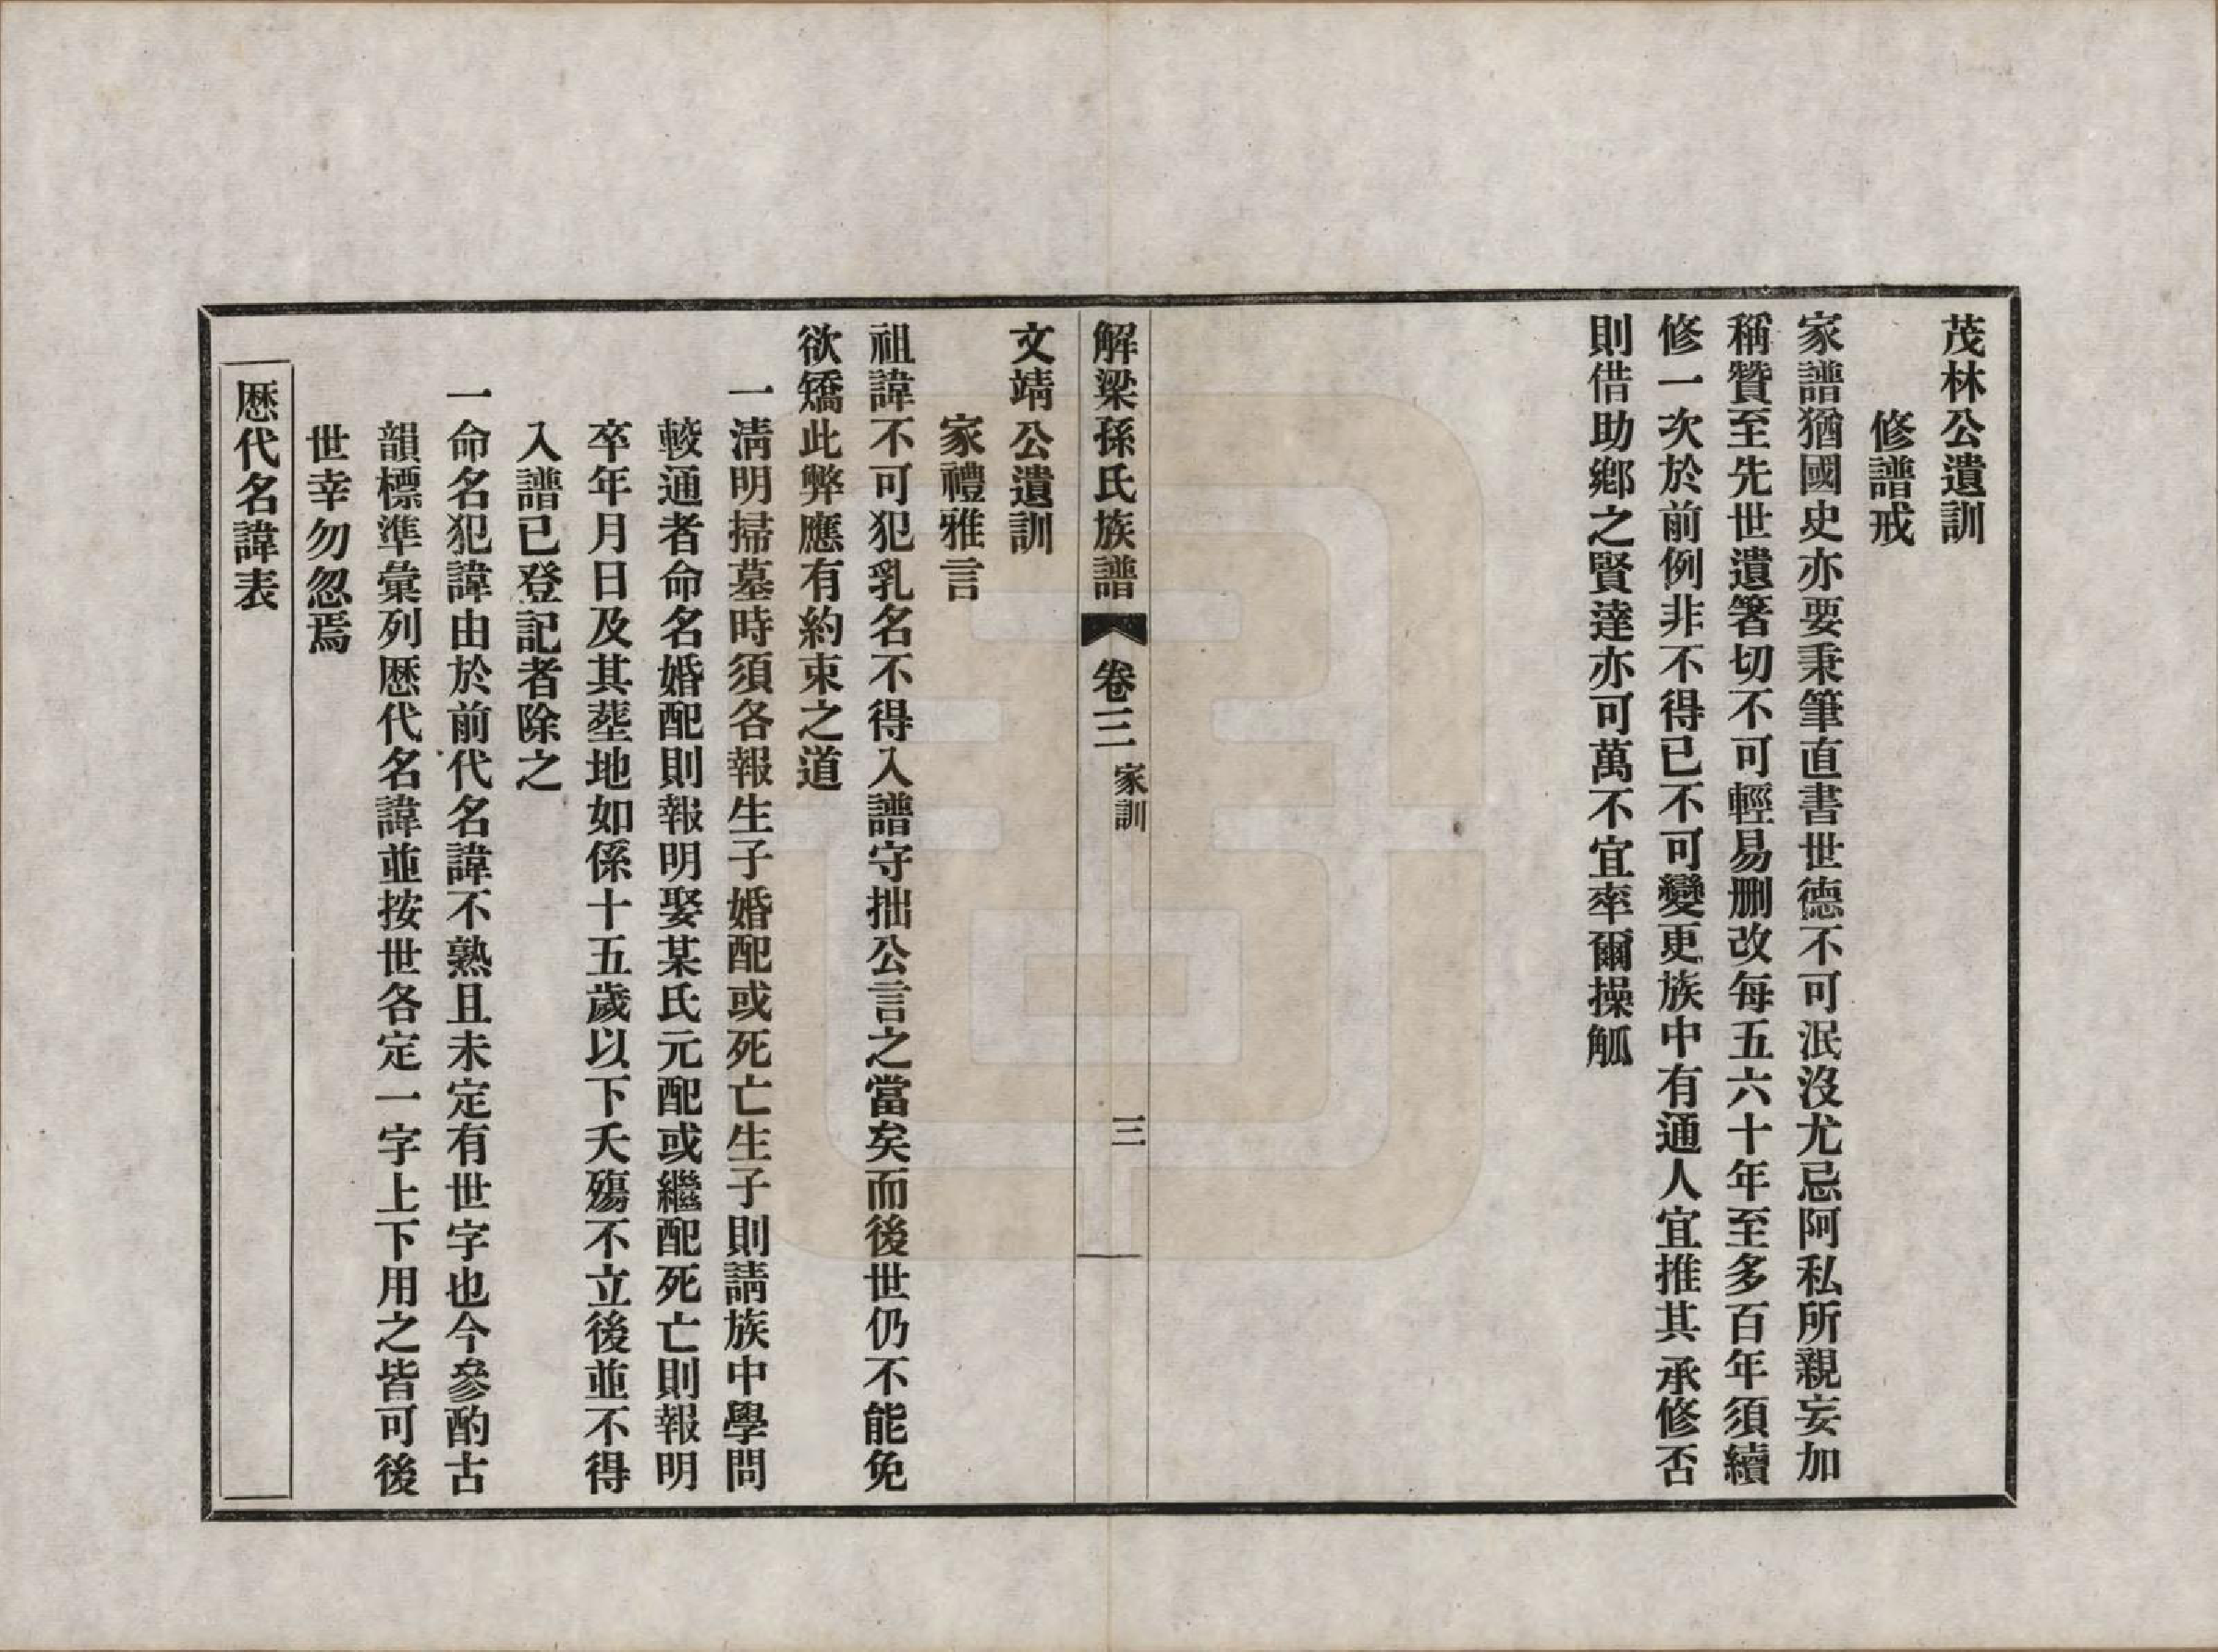 茂林公遺訓
修譜戒
家譜猶國史亦要秉筆直書世德不可泯沒尤忌阿私所親妄加
稱贊至先世遺箸切不可輕易刪改每五六十年至多百年須續
修一次於前例非不得已不可變更族中有通人宜推其承修否
則借助鄉之賢達亦可萬不宜率爾操觚
解梁孫氏族譜 卷三 家訓 三
文靖公遺訓
家禮雅言
祖諱不可犯乳名不得入譜守拙公言之當矣而後世仍不能免
欲矯此弊應有約束之道
一清明掃墓時須各報生子婚配或死亡生子則請族中學問
較通者命名婚配則報明娶某氏元配或繼配死亡則報明
卒年月日及其塟地如係十五歲以下夭殤不立後並不得
入譜已登記者除之
一命名犯諱由於前代名諱不熟且未定有世字也今參酌古
韻標準彙列歷代名諱並按世各定一字上下用之皆可後
世幸勿忽焉
歷代名諱表